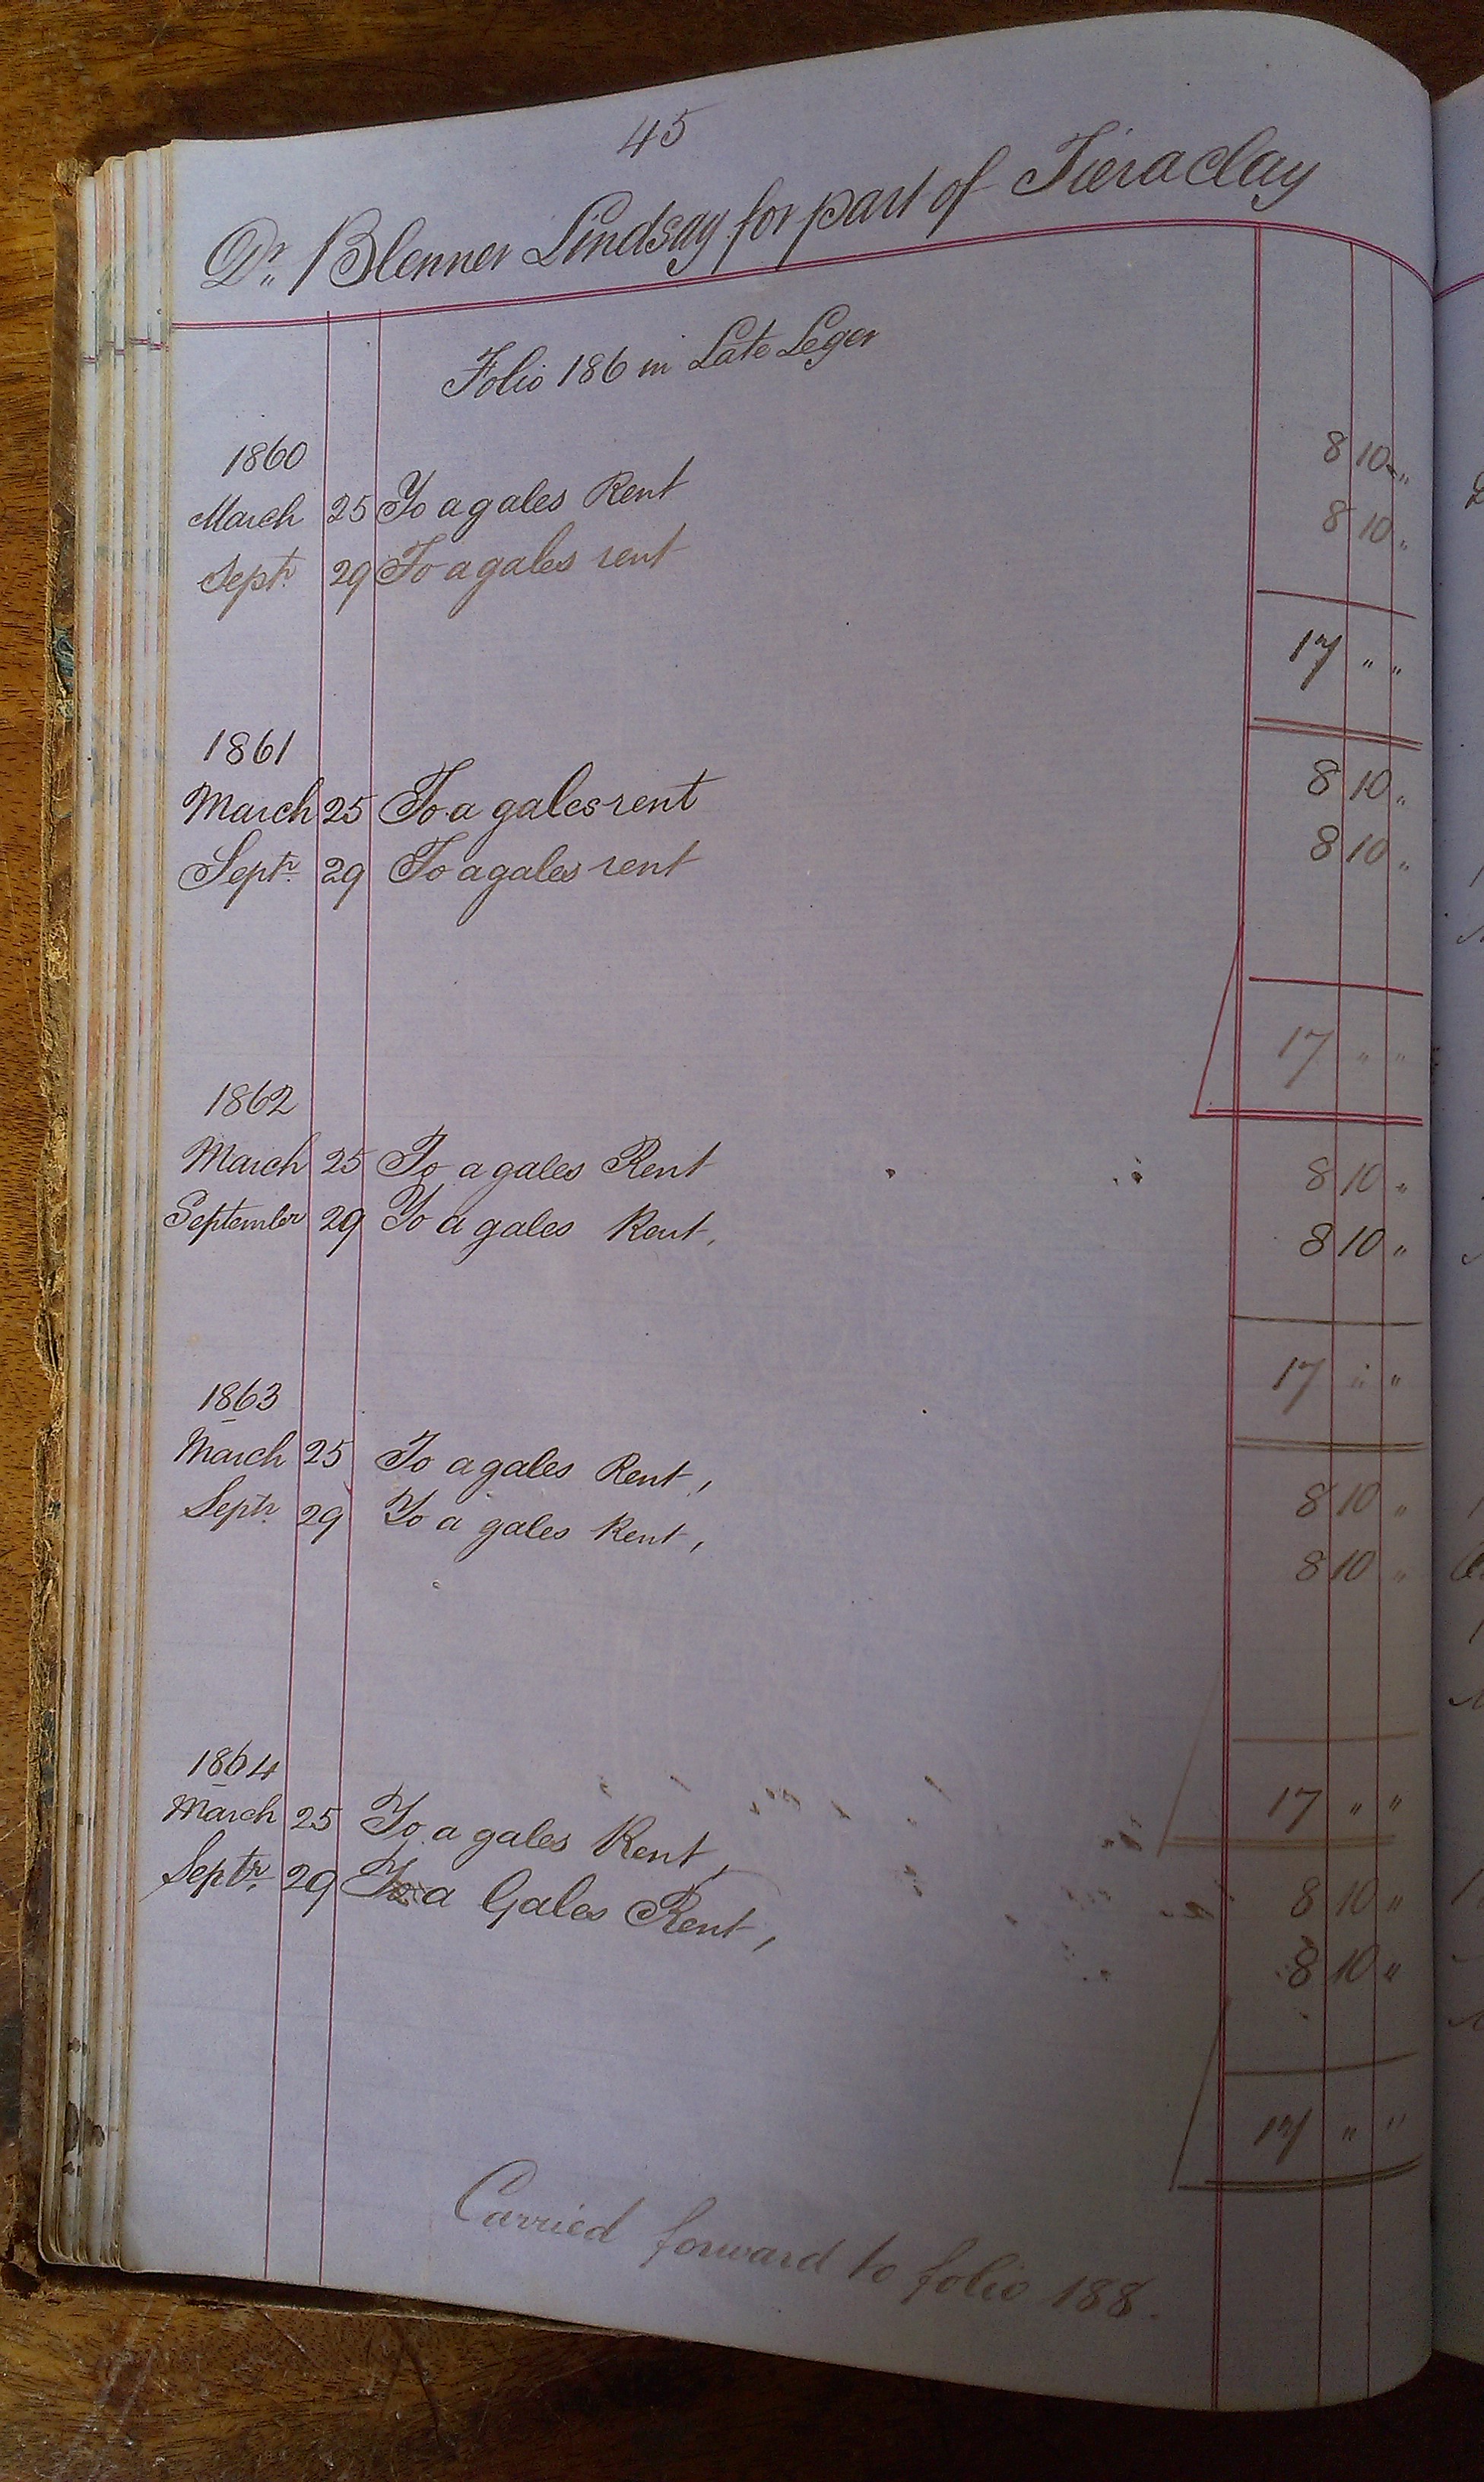 45
Dr. Blenner Lindsay for part of Tieraclay
Folio 186 in Late Leger
1860
March 25 To a gales Rent 8 10 "
Septr. 29 To a gales rent 8 10 "
17 " "
1861
March 25 To a gales rent 8 10 "
Septr. 29 To a gales rent 8 10 "
17 " "
1862
March 25 To a gales Rent 8 10 "
September 29 To a gales Rent, 8 10 "
17 " "
1863
March 25 To a gales Rent, 8 10 "
Septr. 29 To a gales Rent, 8 10 "
17 " "
1864
March 25 To a gales Rent, 8 10 "
Septr. 29 To a Gales Rent, 8 10 "
17 " "
Carried forward to folio 188.